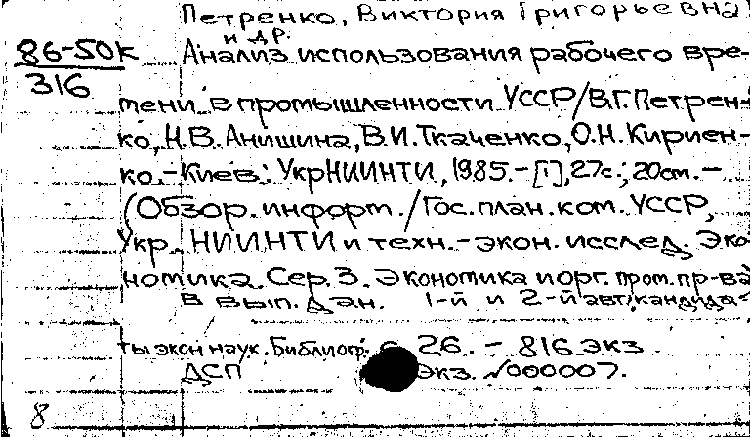 Петренко, Виктория Григорьевна
и др.
86-50к
316
Анализ использования рабочего вре-
мени в промышленности УССР/В.Г.Петрен-
ко, Н.В.Анишина, В.И.Ткаченко, О.Н.Кириен-
ко.-Киев: УкрНИИНТИ, 1985.-[1], 27с.; 20см.-
(Обзор.информ./Гос.план.ком.УССР,
Укр.НИИНТИ и техн.-экон.исслед. Эко
номика. Сер.3. Экономика и орг. пром.пр-ва
В вып. дан. 1-й и 2-й авт. кандида-
ты экон наук. Библиогр. с. 26. - 816 экз.
ДСП экз. №000007.
8